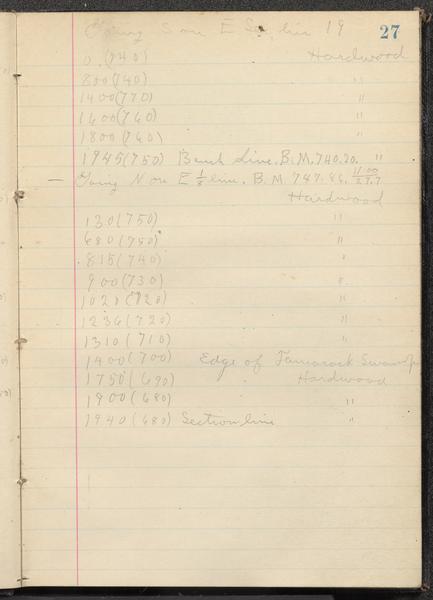 27
Going S on E Sec line 19
0 (740) Hardwood
800 (740) "
1400 (770) "
1600 (760) "
1800 (760) "
1945 (750) Bench Line. B.M. 740.20. "
— Going N on E 1/8 line. B.M. 747.86.
Hardwood
130 (750) "
680 (750) "
815 (740) "
900 (730) "
1020 (720) "
1236 (720) "
1310 (710) "
1400 (700) Edge of Tamarack Swamp
1750 (690) Hardwood
1900 (680) "
1940 (680) Section line "